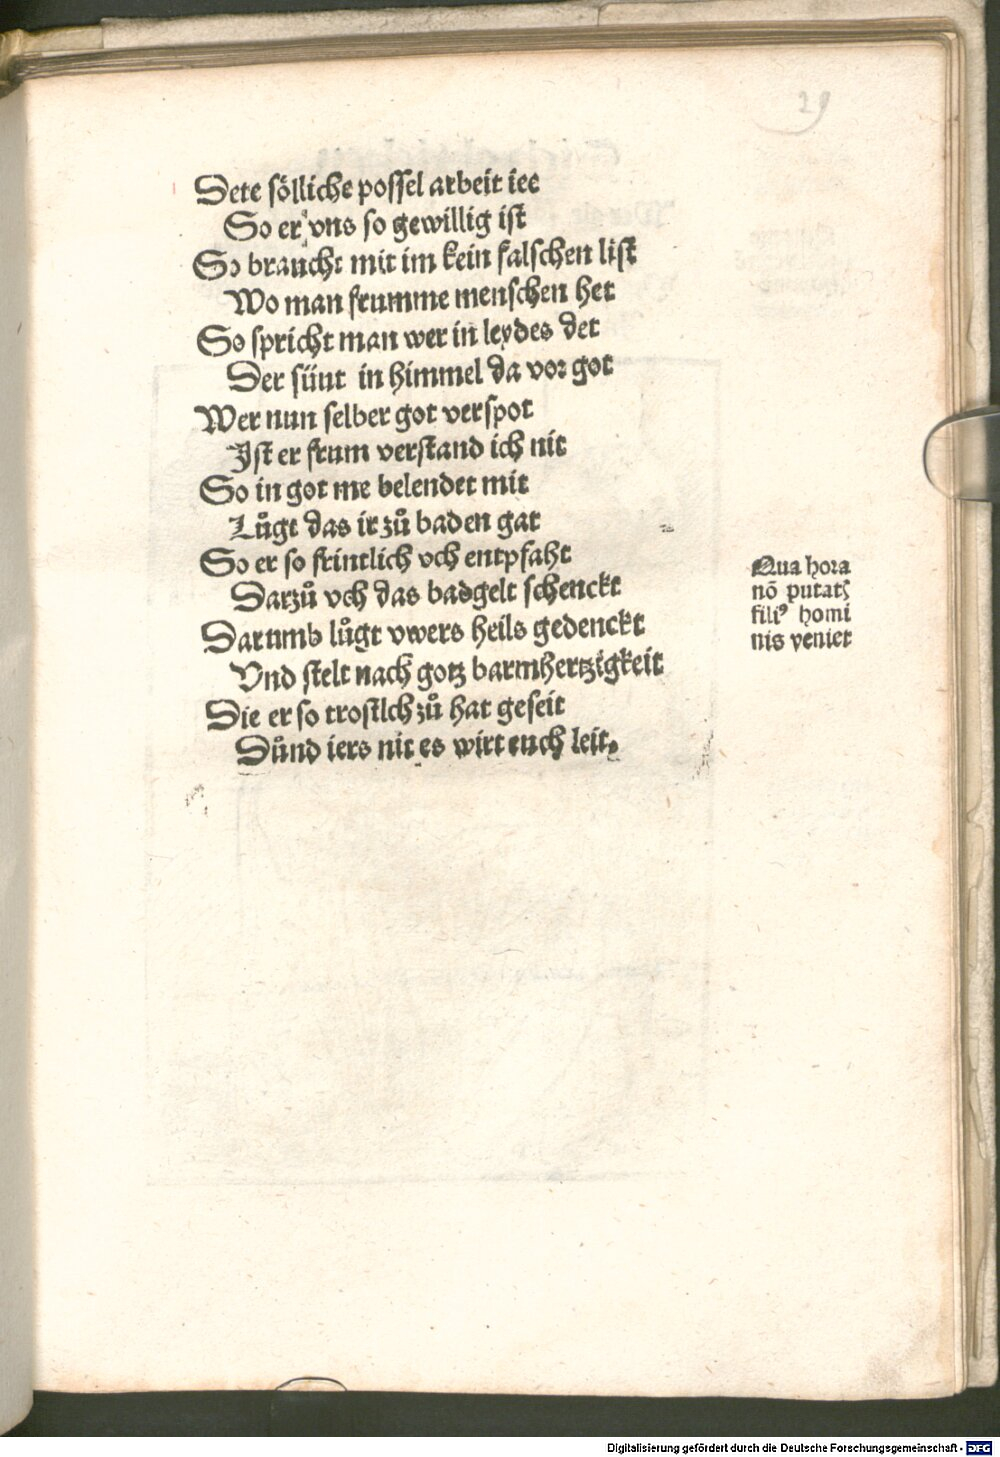 29
Dete sölliche possel arbeit iee
So er vns so gewillig ist
So braucht mit im kein falschen list
Wo man frumme menschen het
So spricht man wer in leydes det
Der sünt in himmel da vor got
Wer nun selber got verspot
Ist er frum verstand ich nit
So in got me belendet mit
Lůgt das ir zů baden gat
So er so frintlich vch entpfaht
Darzů vch das badgelt schenckt
Darumb lůgt vwers heils gedenckt
Vnd stelt nach gotz barmhertzigkeit
Die er so trostlch zů hat geseit
Důnd iers nit es wirt euch leit.
Qua hora
nõ putatꝭ
filiꝰ homi
nis veniet
Digitalisierung gefördert durch die Deutsche Forschungsgemeinschaft - DFG